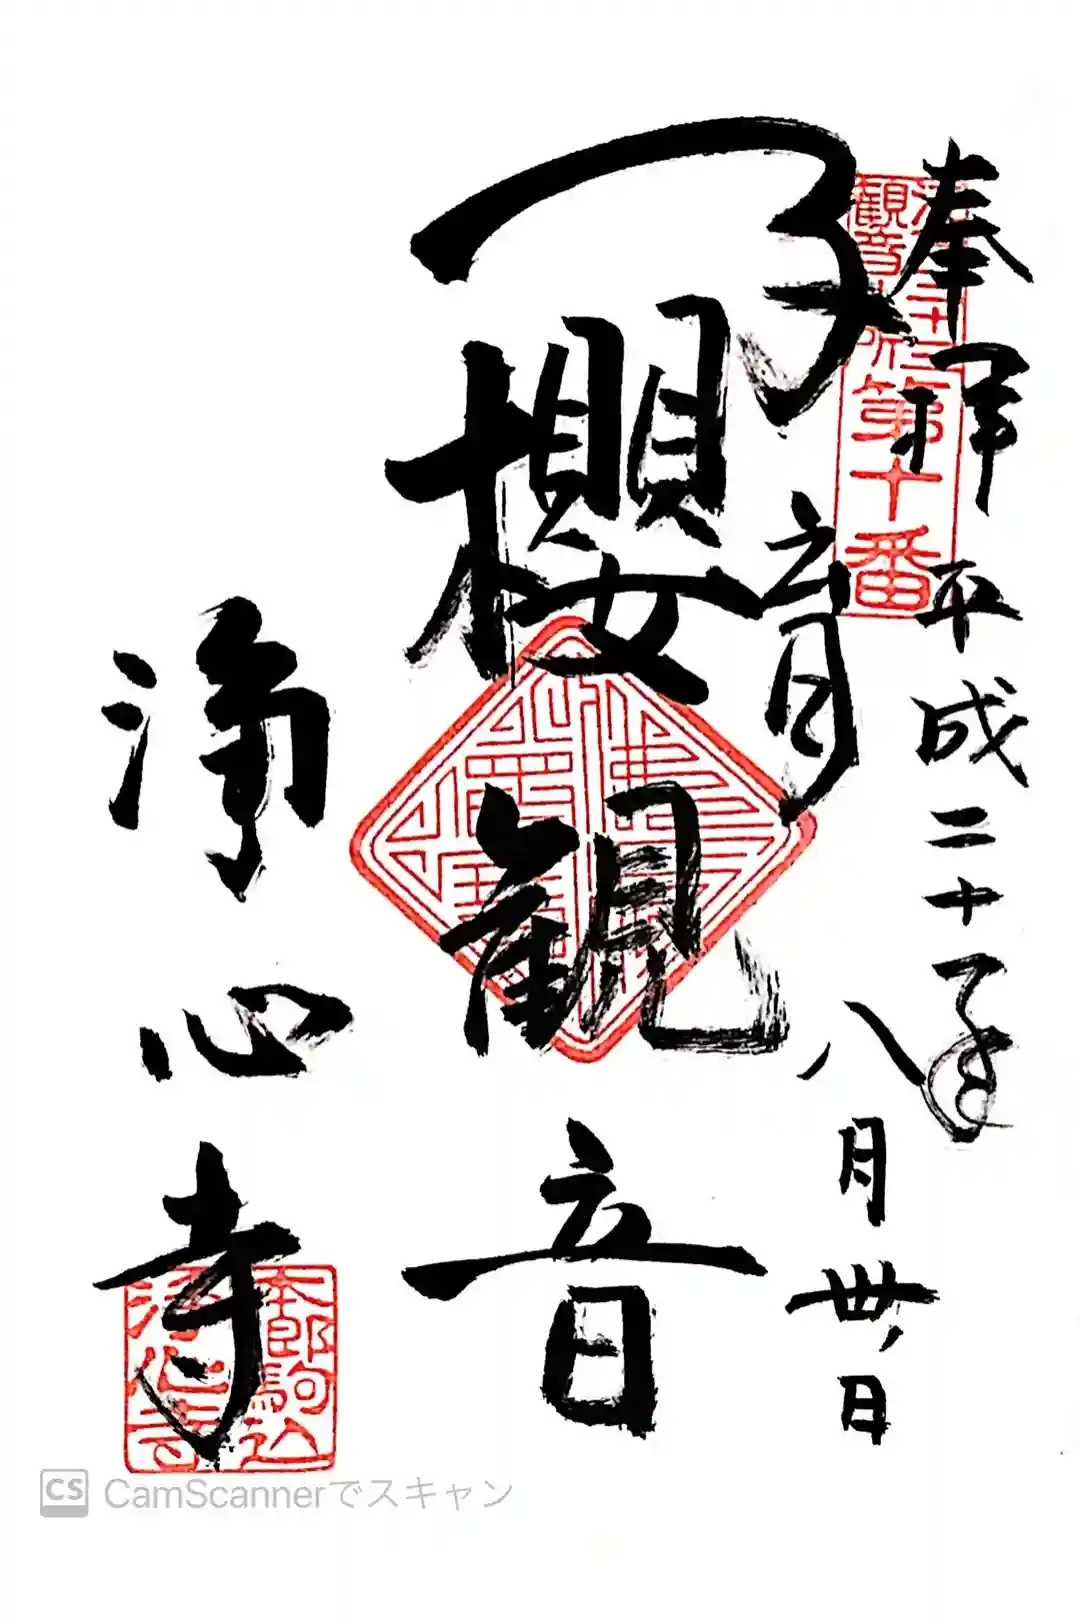 奉拝 平成二十年
八月卅日
江戸三十三
観音札所第十番
子育
櫻観音
浄心寺
本郷駒込
浄心寺
CS CamScannerでスキャン